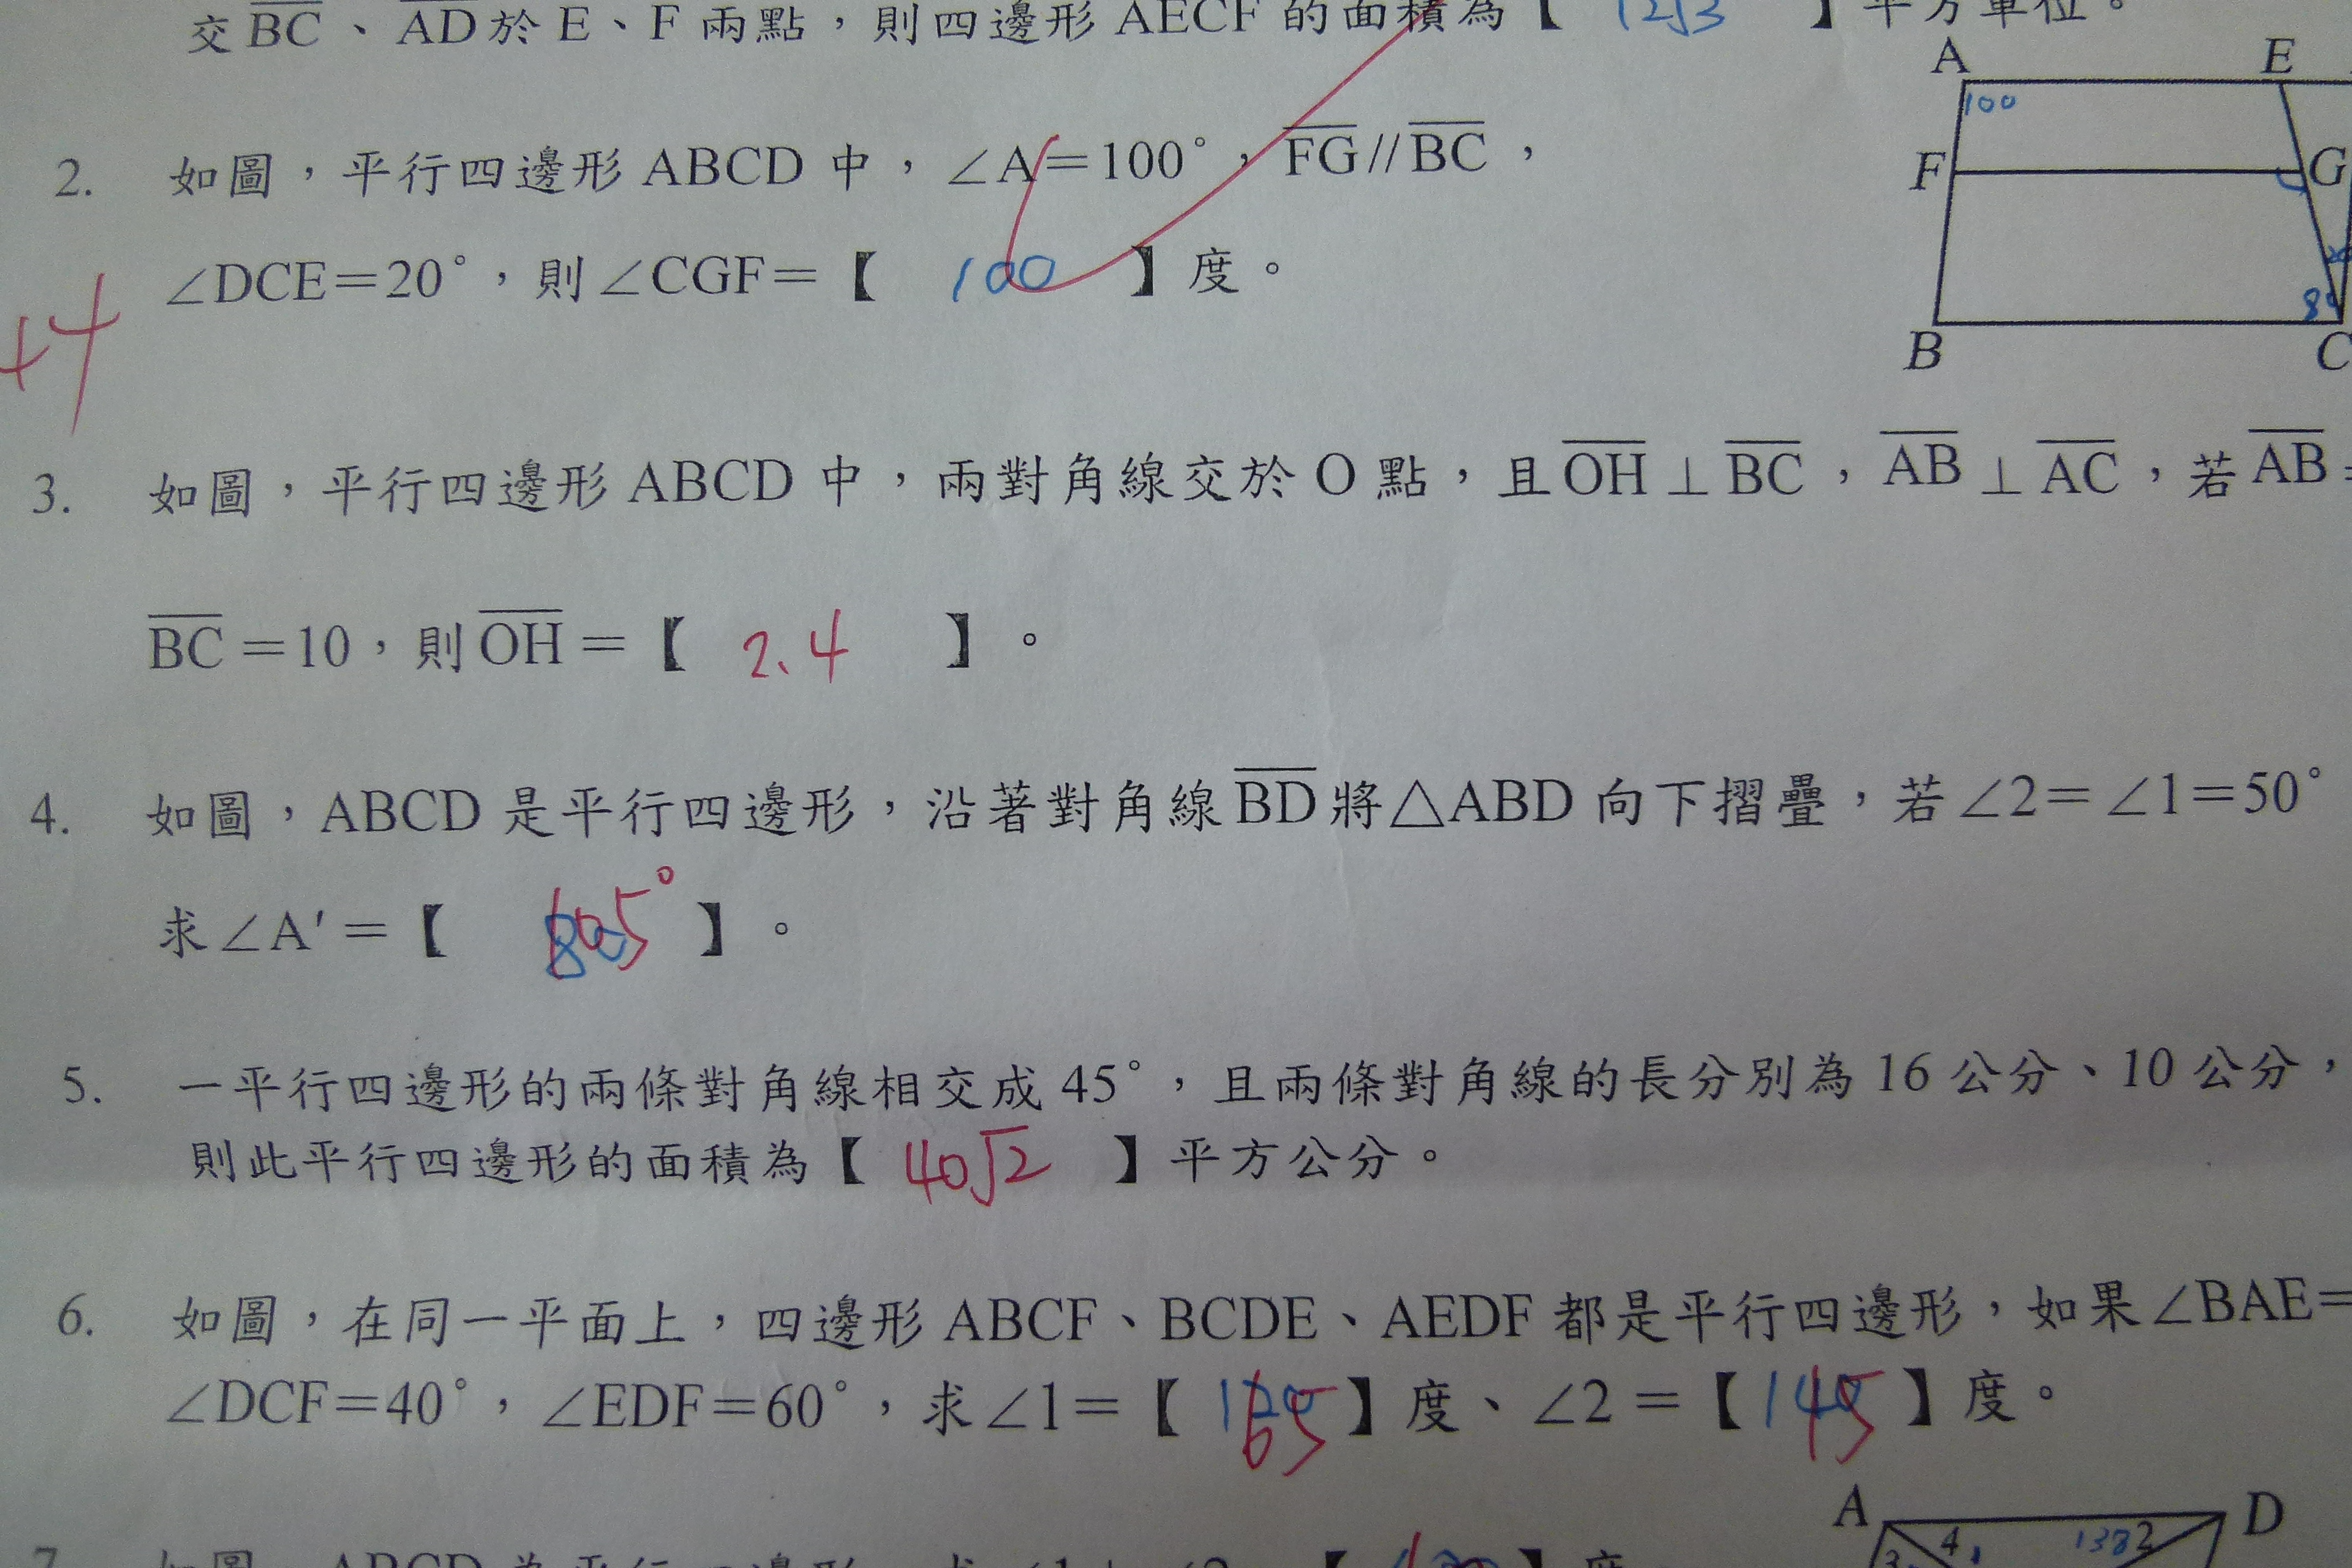 交 BC、AD 於 E、F 兩點，則四邊形 AECF 的面積為【 12√3 】平方單位。
A E
100
2. 如圖，平行四邊形 ABCD 中，∠A=100°，FG//BC，
F G
∠DCE=20°，則∠CGF=【 100 】度。
80
B C
+4
3. 如圖，平行四邊形 ABCD 中，兩對角線交於 O 點，且 OH⊥BC，AB⊥AC，若 AB=
BC=10，則 OH=【 2.4 】。
4. 如圖，ABCD 是平行四邊形，沿著對角線 BD 將△ABD 向下摺疊，若∠2=∠1=50°
求∠A'=【 105° 】。
5. 一平行四邊形的兩條對角線相交成 45°，且兩條對角線的長分別為 16 公分、10 公分，
則此平行四邊形的面積為【 40√2 】平方公分。
6. 如圖，在同一平面上，四邊形 ABCF、BCDE、AEDF 都是平行四邊形，如果∠BAE=
∠DCF=40°，∠EDF=60°，求∠1=【 65 】度、∠2=【 145 】度。
A D
4 138 2
3
7. 如圖，ABCD 為平行四邊形，求∠1+∠2=【 】度。